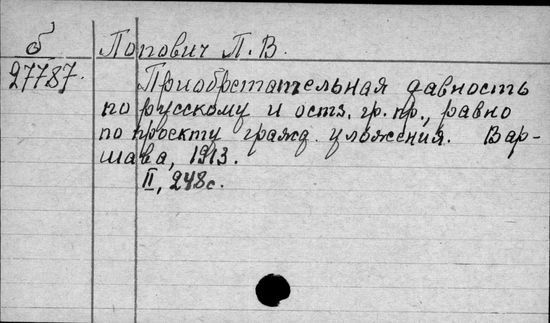 б Попович Л. В.
27787. Приобретательная давность
по русскому и остз. гр. пр., равно
по проекту гражд. уложения. Вар-
шава, 1913.
II, 248с.